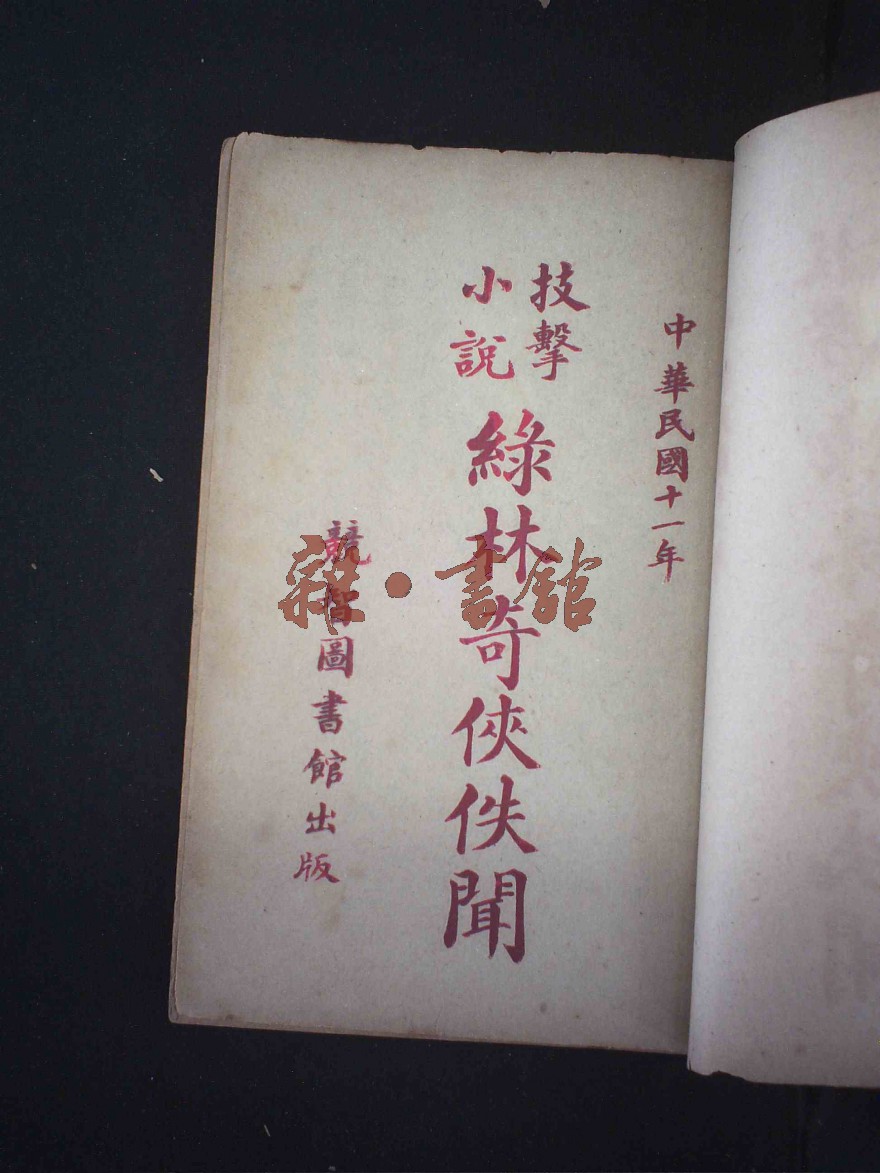 中華民國十一年
技擊
小說
綠林奇俠佚聞
競智圖書館出版
雜·書館